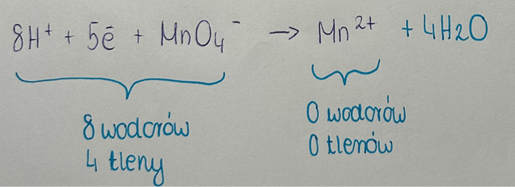 8H⁺ + 5ē + MnO₄⁻ → Mn²⁺ + 4H2O
8 wodorów
4 tleny
0 wodorów
0 tlenów